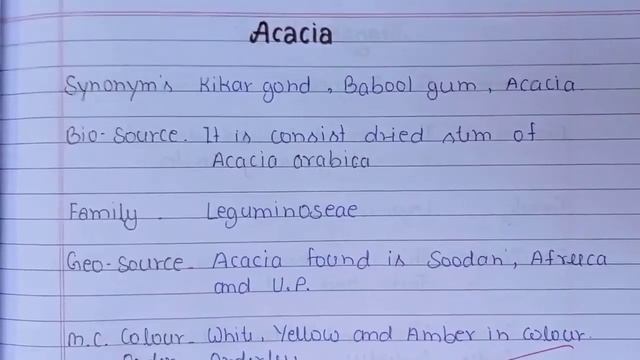 Acacia
Synonym's Kikar gond, Babool gum, Acacia
Bio-Source. It is consist dried stem of
Acacia arabica
Family. Leguminoseae
Geo-Source. Acacia found is Soodan, Afreeca
and U.P.
M.C. Colour. White, Yellow and Amber in colour.